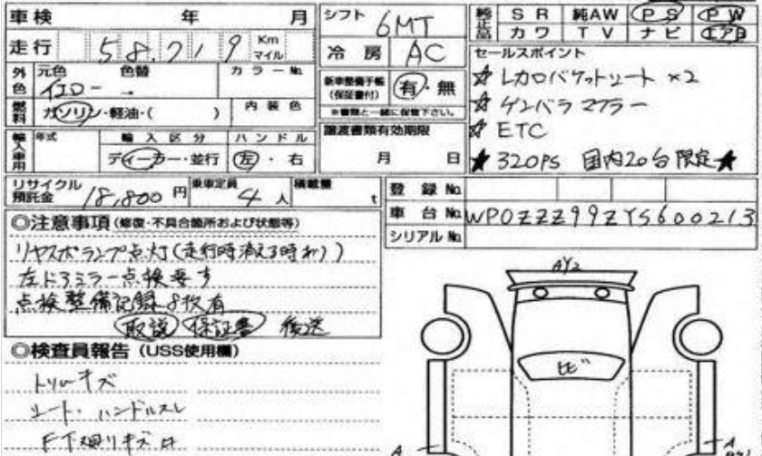 車検 年 月
走行 58,719 Km マイル
外色 元色 色替 カラーNo.
イエロー →
燃料 ガソリン・軽油・( ) 内装色
輸入車用 年式 輸入区分 ハンドル
ディーラー・並行 左・右
リサイクル預託金 18,800 円 乗車定員 4人 積載量 t
シフト 6MT
冷房 AC
新車整備手帳(保証書付) 有・無
※書類と一緒に保管下さい。
譲渡書類有効期限
月 日
純正品 SR 純AW PS PW
カワ TV ナビ エアB
セールスポイント
☆レカロバケットシート ×2
☆ゲンバラマフラー
☆ETC
★320PS 国内20台限定★
登録No.
車台No. WP0ZZZ99ZYS600213
シリアルNo.
◎注意事項(修復・不具合箇所および状態等)
リヤスポランプ点灯(走行時消える時有)
左ドアミラー点検要す
点検整備記録8枚有
取説 保証書 後送
◎検査員報告(USS使用欄)
トリムキズ
シート・ハンドルスレ
F下廻りキズ
AY2
ヒビ
A
A